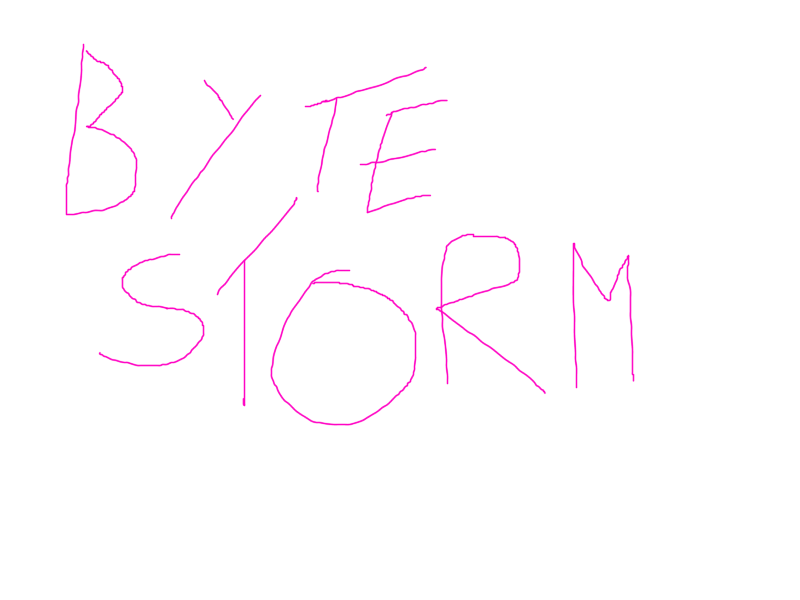 BYTE
STORM